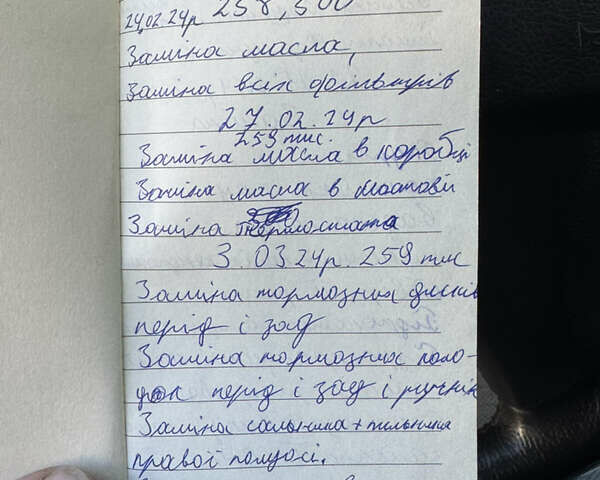 24.02.24р 258,500
Заміна масла,
Заміна всіх фільтрів
27.02.24р
259 тис.
Заміна масла в коробці
Заміна масла в мостові
Заміна термостата
3.03.24р. 259 тис
Заміна тормозних дисків
перід і зад
Заміна тормозних коло-
док перід і зад і ручнік
Заміна сальника + пильника
правої полуосі.